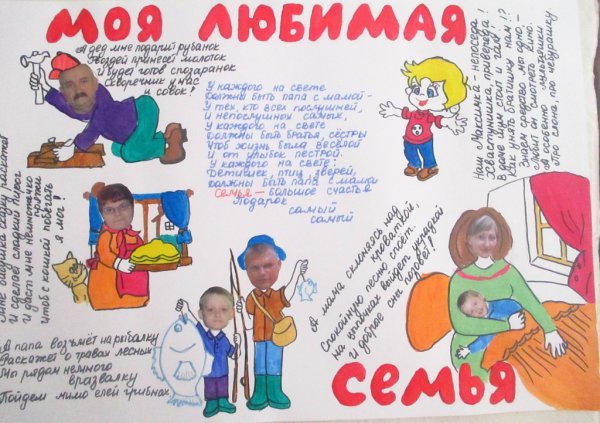 МОЯ ЛЮБИМАЯ
А дед мне подарил рубанок
Гвоздей принесёт молоток
И будет готов спозаранок
Скворечник у нас
и совок!
У каждого на свете
Должны быть папа с мамой -
У тех, кто всех послушней,
И непослушных самых,
У каждого на свете
Должны быть братья, сёстры
Чтоб жизнь была весёлой
И от улыбок пёстрой.
У каждого на свете:
Детишек, птиц, зверей,
Должны быть папа с мамой
Семья - большое счастье
Подарок
самый
самый
Наш Максимка - непоседа!
Хвастунишка, привереда!
Вечно шум стоит и гам!
Как унять братишку нам!?
Знаем средство мы одно, -
Любит он смотреть кино.
А особенно мультяшки
Про слона, про чебурашку.
Мне бабушка сказку расскажет
И сделает сладкий пирог
И даст мне немножечко
пряжи
Чтоб с кошкой побегать
я мог!
А папа возьмёт на рыбалку
Расскажет о травах лесных
Мы рядом немного
вразвалку
Пойдём мимо елей грибных
А мама склоняясь над
кроваткой,
Спокойную песню споёт.
На цыпочках выйдет украдкой
И добрые сны позовёт!
СЕМЬЯ